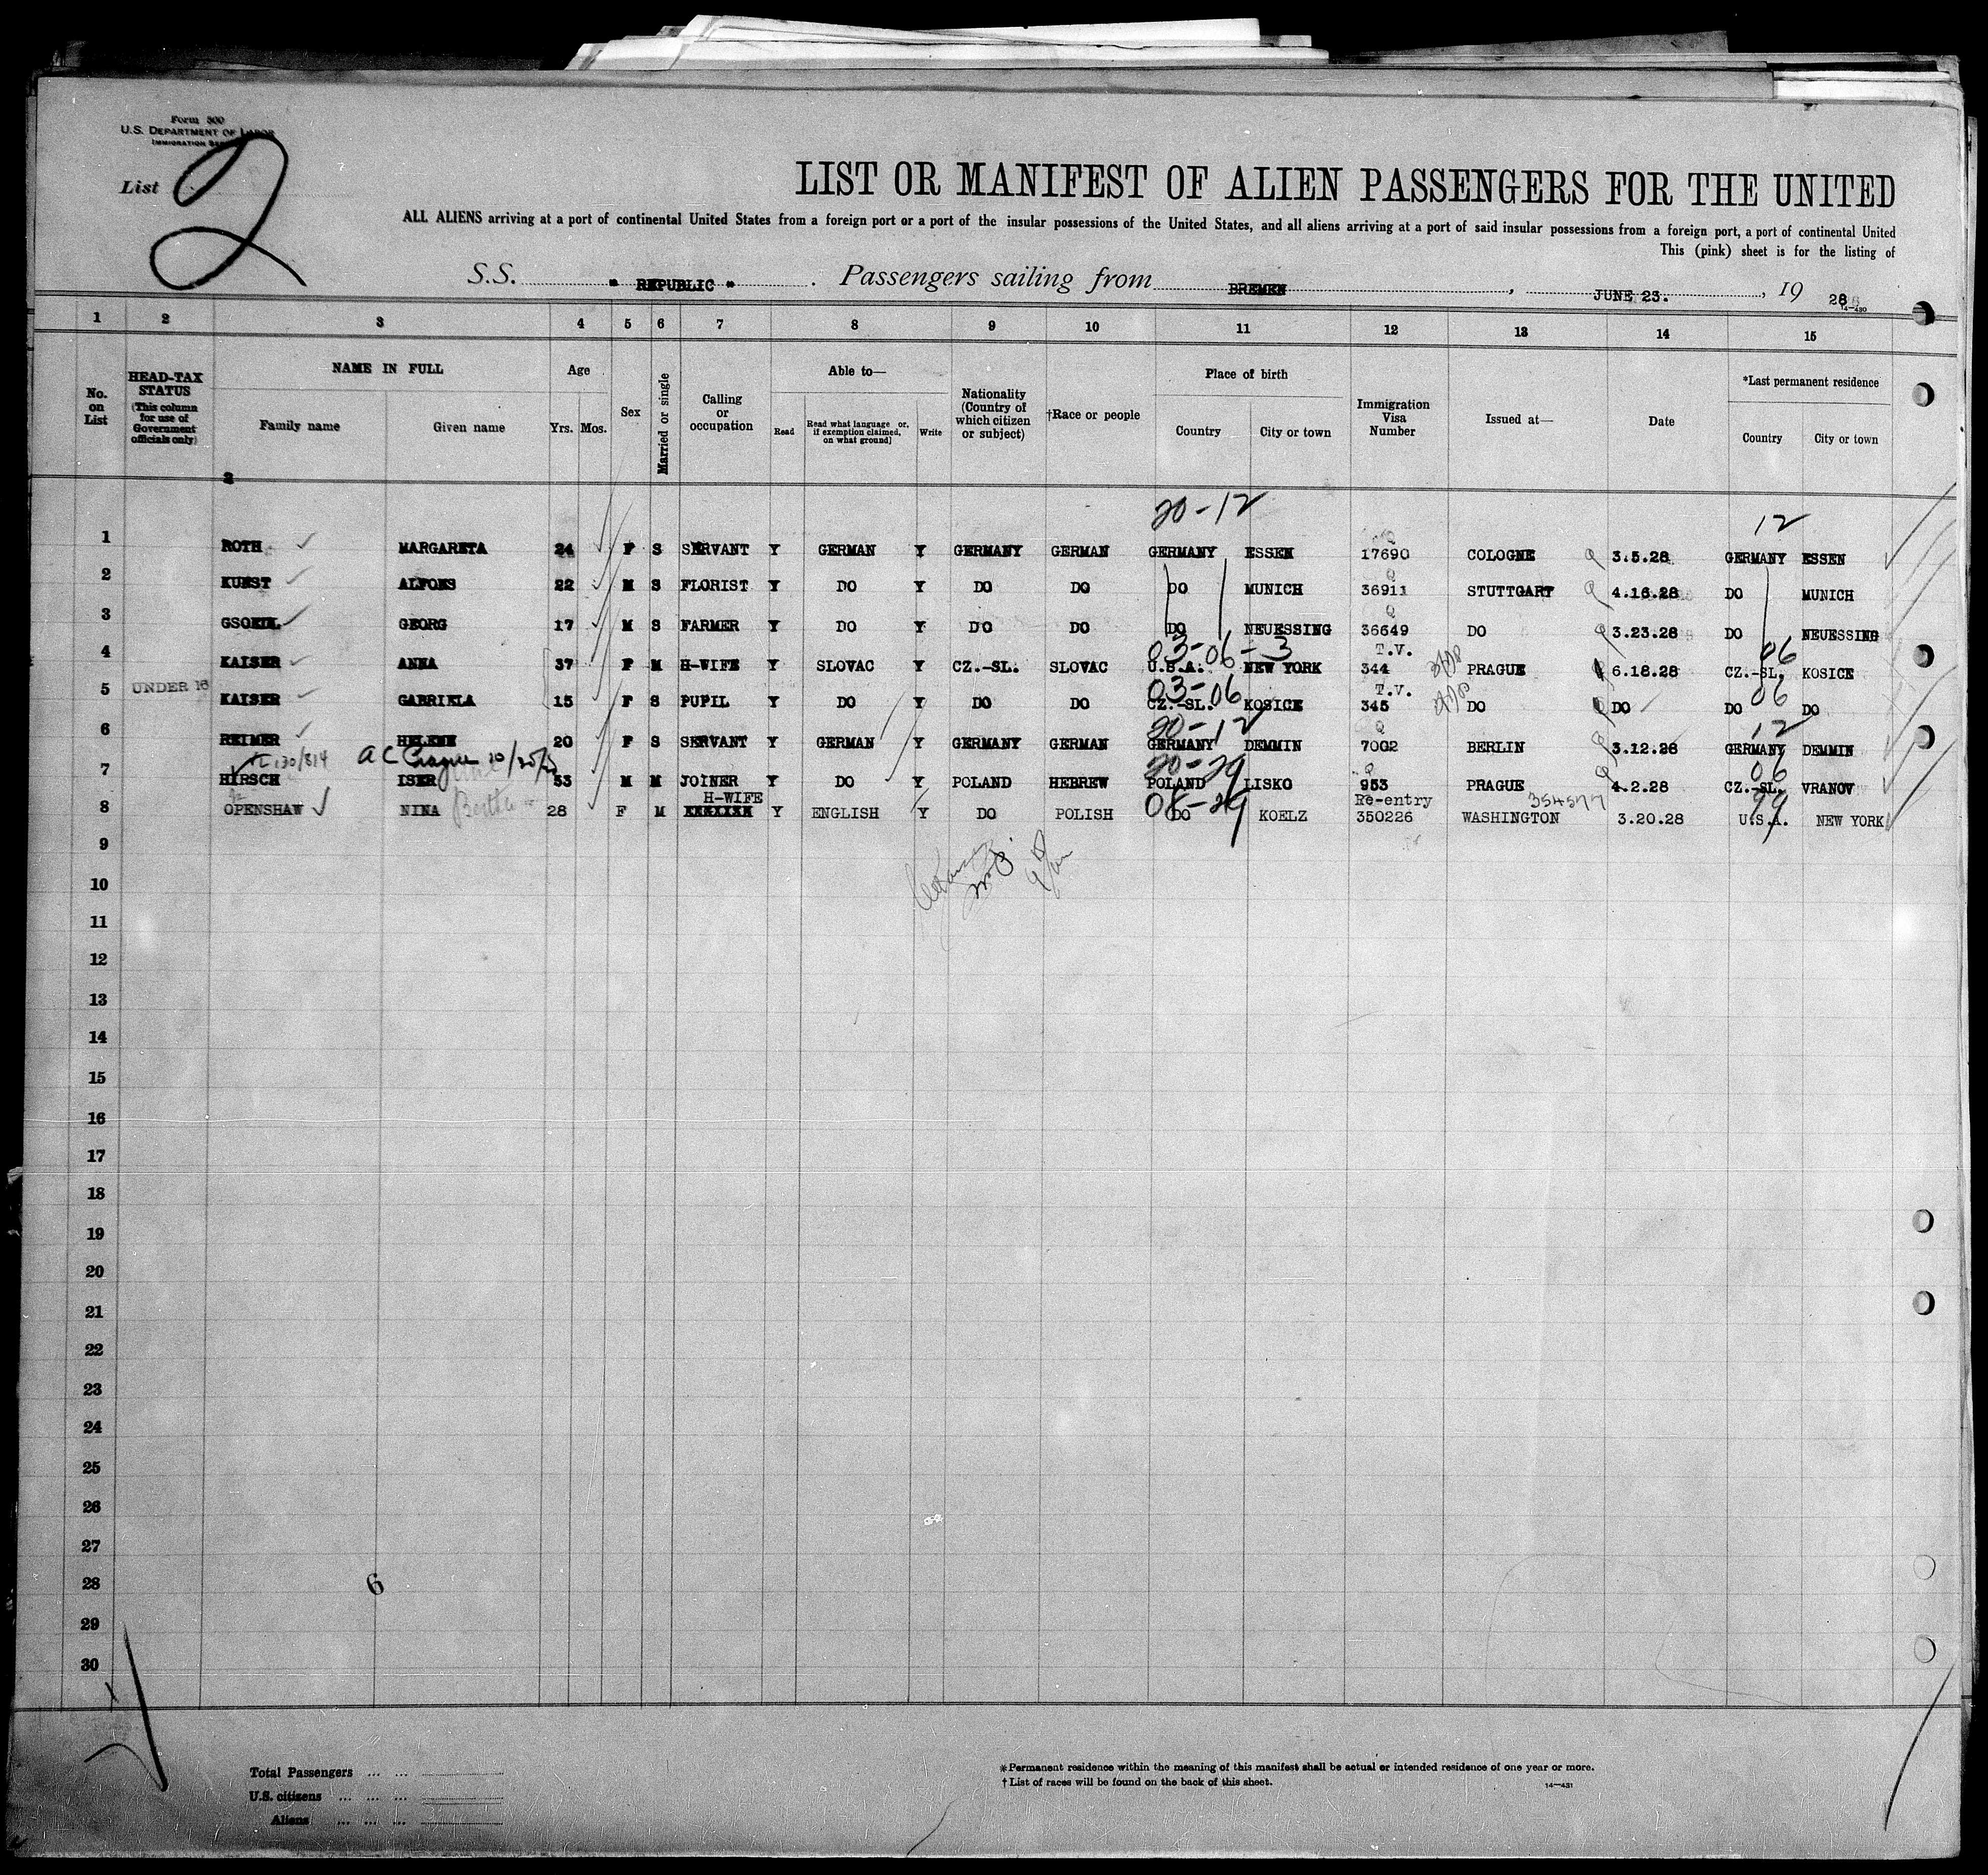 Form 500
U.S. DEPARTMENT OF LABOR
IMMIGRATION
List 2
LIST OR MANIFEST OF ALIEN PASSENGERS FOR THE UNITED
ALL ALIENS arriving at a port of continental United States from a foreign port or a port of the insular possessions of the United States, and all aliens arriving at a port of said insular possessions from a foreign port, a port of continental United
This (pink) sheet is for the listing of
S.S. " REPUBLIC " . Passengers sailing from BREMEN , JUNE 23. , 19 28
14-430
1 2 3 4 5 6 7 8 9 10 11 12 13 14 15
No. on List
HEAD-TAX STATUS (This column for use of Government officials only)
NAME IN FULL
Family name Given name
Age
Yrs. Mos.
Sex
Married or single
Calling or occupation
Able to—
Read Read what language or, if exemption claimed, on what ground] Write
Nationality (Country of which citizen or subject)
†Race or people
Place of birth
Country City or town
Immigration Visa Number
Issued at—
Date
*Last permanent residence
Country City or town
2
20-12 12
Q
1 ROTH MARGARETA 24 F S SERVANT Y GERMAN Y GERMANY GERMAN GERMANY ESSEN 17690 COLOGNE Q 3.5.28 GERMANY ESSEN
Q
2 KUNST ALFONS 22 M S FLORIST Y DO Y DO DO DO MUNICH 36911 STUTTGART Q 4.16.28 DO MUNICH
Q
3 GEORG 17 M S FARMER Y DO Y DO DO DO NEUESSING 36649 DO Q 3.23.28 DO NEUESSING
03-06-3 T.V. 06
4 KAISER ANNA 37 F M H-WIFE Y SLOVAC Y CZ.-SL. SLOVAC U.S.A. NEW YORK 344 PRAGUE 6.18.28 CZ.-SL. KOSICE
03-06 T.V. 06
5 UNDER 16 KAISER GABRIELA 15 F S PUPIL Y DO Y DO DO CZ.-SL. KOSICE 345 DO DO DO DO
20-12 Q 12
6 REIMER HELENE 20 F S SERVANT Y GERMAN Y GERMANY GERMAN GERMANY DEMMIN 7002 BERLIN 3.12.28 GERMANY DEMMIN
130/814 AC 20-29 Q 06
7 HIRSCH ISER 53 M M JOINER Y DO Y POLAND HEBREW POLAND LISKO 953 PRAGUE 4.2.28 CZ.-SL. VRANOV
H-WIFE 08-29 Re-entry 354577 99
8 OPENSHAW NINA 28 F M Y ENGLISH Y DO POLISH DO KOELZ 350226 WASHINGTON 3.20.28 U.S.A. NEW YORK
9
10
11
12
13
14
15
16
17
18
19
20
21
22
23
24
25
26
27
28 6
29
30
Total Passengers ... ...
U.S. citizens ... ... ...
Aliens ... ... ...
*Permanent residence within the meaning of this manifest shall be actual or intended residence of one year or more.
†List of races will be found on the back of this sheet.
14-431